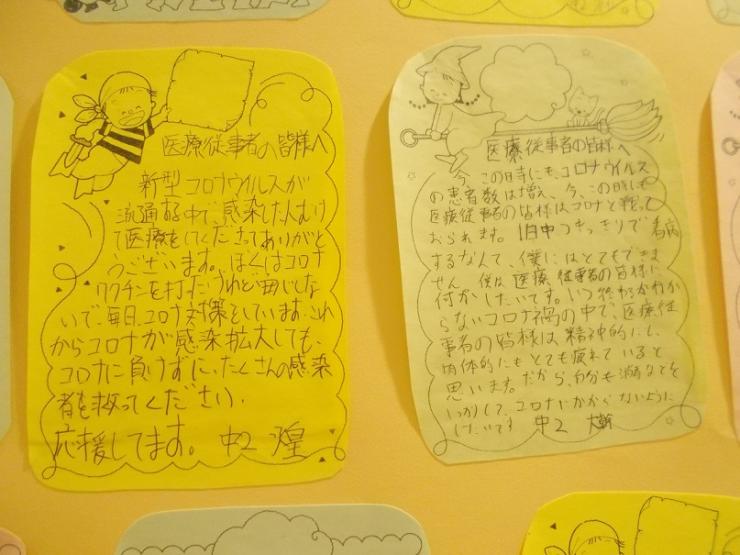 医療従事者の皆様へ
新型コロナウイルスが
流通する中で、感染した人むけ
て医療をしてくださってありがと
うございます。ぼくはコロナ
ワクチンを打ったけれど油断しな
いで、毎日、コロナ対策をしています。これ
からコロナが感染拡大しても、
コロナに負けずに、たくさんの感染
者を救ってください。
応援してます。 中2 煌
医療従事者の皆様へ
今、この時にも、コロナウイルス
の患者数は増え、今、この時にも
医療従事者の皆様はコロナと戦って
おられます。1日中つきっきりで看病
するなんて、僕にはとてもできま
せん。僕は医療従事者の皆様に
何かしたいです。いつ終わるかわか
らないコロナ禍の中で、医療従
事者の皆様は精神的にも、
肉体的にもとても疲れていると
思います。だから、自分も消毒などを
しっかりして、コロナにかからないように
したいです 中2 大